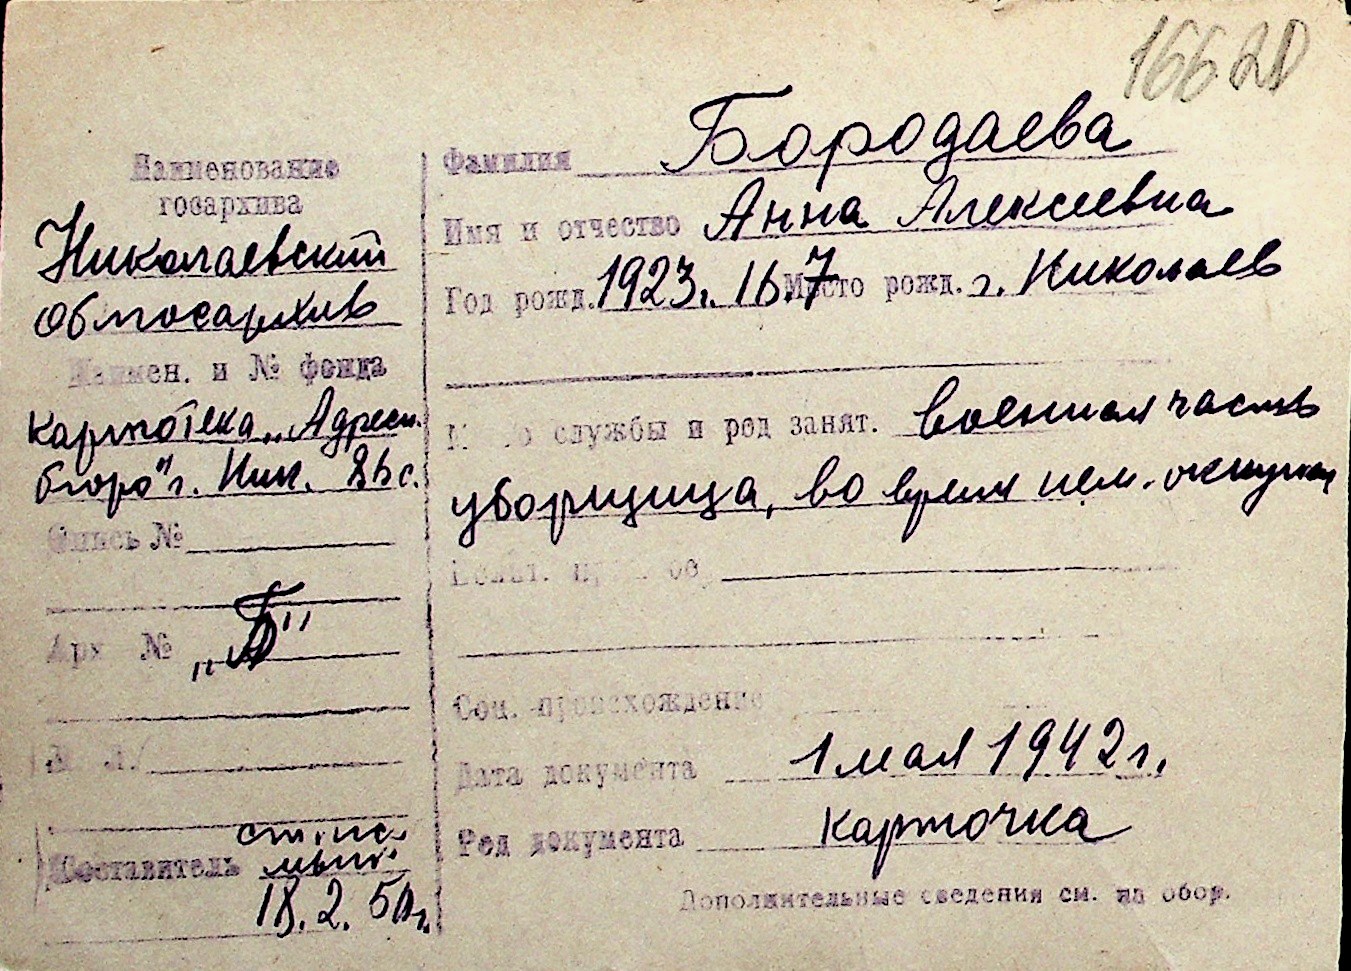 1662
Наименование
госархива
Николаевский
облгосархив
Наимен. и № фонда
картотека „Адресн.
бюро" г. Ник.
Опись №
Арх №
„Б"
Составитель
2. 50г.
Фамилия Бородаева
Имя и отчество Анна Алексеевна
Год рожд. 1923. 16.7 Место рожд. г. Николаев
службы и род занят. военная часть
уборщица, во время нем. оккупац
Соц. происхождение
Дата документа 1 мая 1942 г.
Род документа карточка
Дополнительные сведения см. на обор.